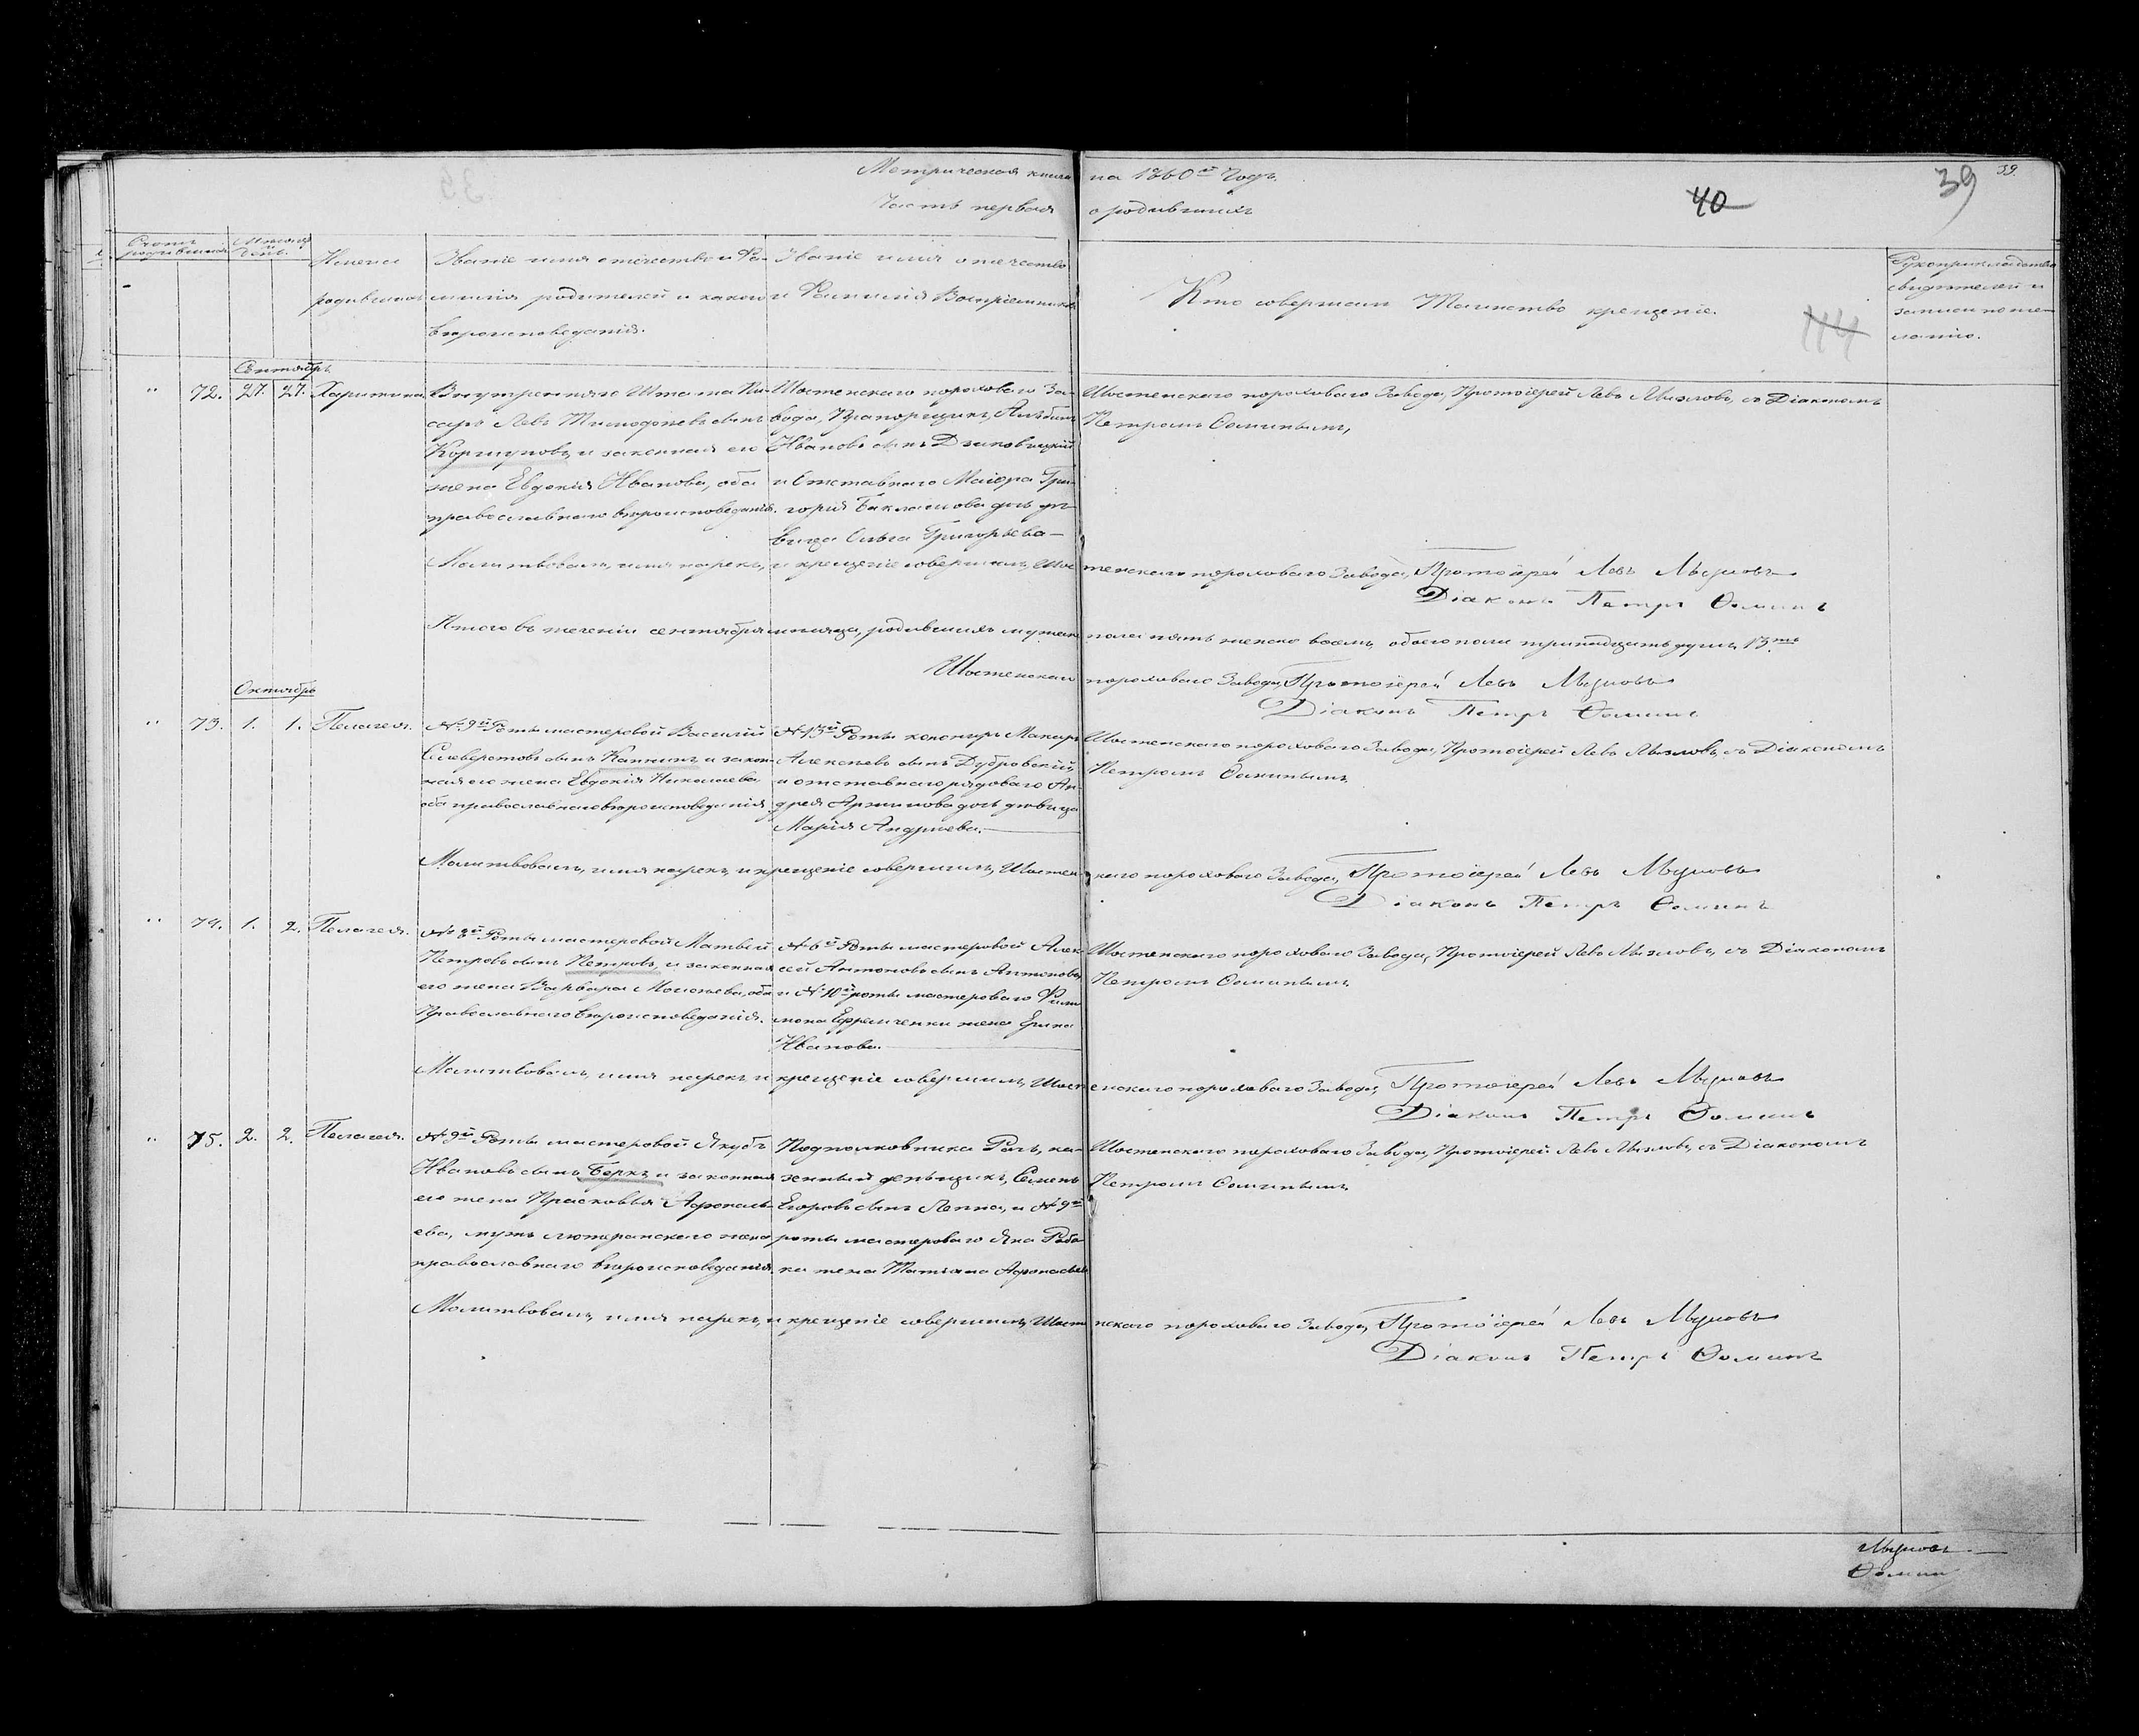 Метрическая книга на 1860й Годъ.
39
39.
Часть первая о родившихся
40
Счетъ родившихся
Мѣсяцъ и день.
Имена родившихся
Званіе имя отечество и Фамилія родителей и какого вѣроисповеданія.
Званіе имя отечество и Фамилія Воспріемниковъ
Кто совершалъ Таинство крещеніе.
44
Рукоприкладство свидѣтелей и записи по желанію.
Сентябрь
72. 27. 27. Харитина
Внутренняго Штата Писарь Левъ
Коршуновъ, и законная его
жена Евдокія Иванова, оба
православнаго вѣроисповеданія.
Шостенскаго пороховаго Завода, Прапорщикъ,
Ивановъ сынъ
и Отставнаго Маіора Григорія Бакланова дочь дѣвица Ольга Григорьева—
Шостенскаго пороховаго Завода, Протоіерей Левъ Мызловъ, съ Діакономъ
Петромъ Ѳоминымъ,
Молитвовалъ, имя нарекъ, и крещеніе совершилъ, Шостенскаго пороховаго Завода, Протоіерей Левъ Мызловъ
Діаконъ Петръ Ѳоминъ
Итого въ теченіи сентября мѣсяца, родившихся мужеска пола пять женска восемь, обоего пола тринадцать душъ, 13.ть
Шостенскаго пороховаго Завода, Протоіерей Левъ Мызловъ
Діаконъ Петръ Ѳоминъ
Октябрь
73. 1. 1. Пелагея.
№ 9й Роты мастеровой Василій
Селеверстовъ сынъ Капнинъ и законная его жена Евдокія Николаева
оба православнаго вѣроисповеданія,
№ 13й Роты Макаръ
Алексѣевъ сынъ Дубровскій,
и отставнаго рядоваго Андрея дочь дѣвица
Марія Андреева.
Шостенскаго пороховаго Завода, Протоіерей Левъ Мызловъ, съ Діакономъ
Петромъ Ѳоминымъ
Молитвовалъ, имя нарекъ, и крещеніе совершилъ, Шостенскаго пороховаго Завода, Протоіерей Левъ Мызловъ
Діаконъ Петръ Ѳоминъ
74. 1. 2. Пелагея.
№ 8й Роты мастеровой Матвѣй
Петровъ сынъ Петровъ, и законная
его жена Варвара Моисеева, оба
Православнаго вѣроисповеданія.
№ 6й Роты мастеровой Алексей Антоновъ сынъ Антоновъ,
и № 10й роты мастероваго Филимона Ефремченки жена Ирина
Иванова.
Шостенскаго пороховаго Завода, Протоіерей Левъ Мызловъ, съ Діакономъ
Петромъ Ѳоминымъ.
Молитвовалъ, имя нарекъ и крещеніе совершилъ, Шостенскаго пороховаго Завода, Протоіерей Левъ Мызловъ
Діаконъ Петръ Ѳоминъ
75. 2. 2. Пелагея.
№ 9й Роты мастеровой Якубъ
Ивановъ сынъ Беркъ, и законная
его жена Прасковья Афонасьева, мужъ лютеранскаго жена
православнаго вѣроисповеданія.
Подполковника казенный деньщикъ, Семенъ
Егоровъ сынъ Лепна, и № 9й
роты мастероваго Яна
жена Татіана Афонасьева
Шостенскаго пороховаго Завода, Протоіерей Левъ Мызловъ, съ Діакономъ
Петромъ Ѳоминымъ
Молитвовалъ, имя нарекъ, и крещеніе совершилъ, Шостенскаго пороховаго Завода, Протоіерей Левъ Мызловъ
Діаконъ Петръ Ѳоминъ
Мызловъ
Ѳоминъ